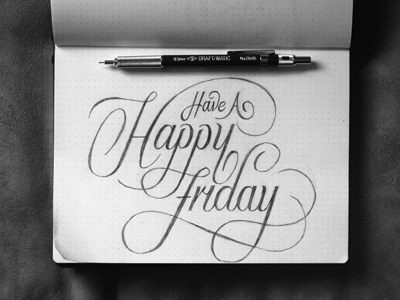 0.5mm DRAFT/MATIC
Have A
Happy
friday